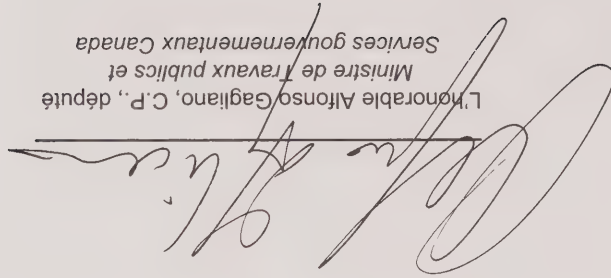 L'honorable Alfonso Gagliano, C.P., député
Ministre de Travaux publics et
Services gouvernementaux Canada